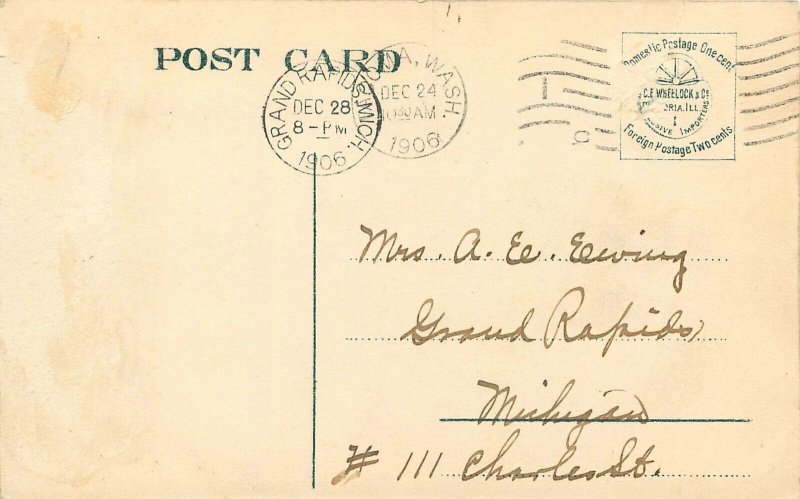 POST CARD
GRAND RAPIDS, MICH.
DEC 28
8-PM
1906
WASH.
DEC 24
AM
1906
Domestic Postage One cent
C.E. WHEELOCK & Co
ORIA. ILL
IMPORTERS
Foreign Postage Two cents
Mrs. A. E. Ewing
Grand Rapids
Michigan
# 111 Charles St.